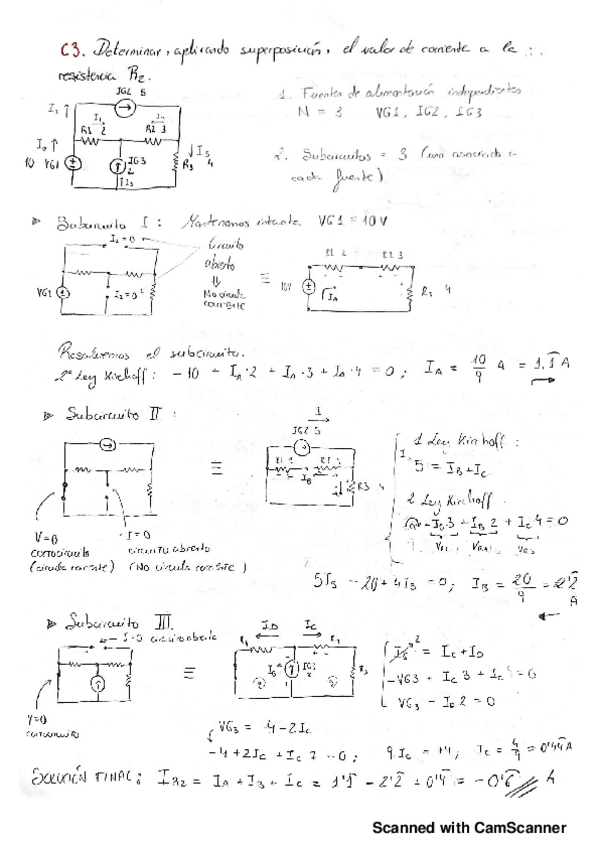 C3. Determinar, aplicando superposición, el valor de corriente a la
resistencia R2.
IG2 5
1. Fuentes de alimentación independientes
N = 3 VG1, IG2, IG3
I1
R1 2
R2 3
I0
10 VG1
IG3
2
I3
I5
R3 4
2. Subcircuitos = 3 (uno asociado a
cada fuente)
Subcircuito I : Mantenemos intacta VG1 = 10V
I1 = 0
Circuito
abierto
No circula
corriente
VG1
I2 = 0
≡
R1 2
R2 3
10V
IA
R3 4
Resolvemos el subcircuito.
2ª Ley Kirchoff : -10 + IA·2 + IA·3 + IA·4 = 0 ; IA = 10/9 A = 1,1 A
Subcircuito II :
I
IG2 5
≡
IB
R3 4
V=0
cortocircuito
(circula corriente)
I=0
circuito abierto
(No circula corriente)
1 Ley Kirchoff :
5 = IB + IC
2 Ley Kirchoff
IB 2 + IC 4 = 0
5IB - 20 + 4IB = 0 ; IB = 20/9 = 2'2
A
Subcircuito III.
I=0 circuito abierto
V=0
cortocircuito
≡
ID
IC
R1
R2
IG3
2
R3
= IC + ID
-VG3 + IC 3 + IC = 0
VG3 - ID 2 = 0
VG3 = 4 - 2IC
-4 + 2IC + IC 7 = 0 ; 9IC = +4 ; IC = 4/9 = 0'44 A
SOLUCIÓN FINAL : IR2 = IA + IB + IC = 1'1 - 2'2 + 0'4 = -0'6 A
Scanned with CamScanner